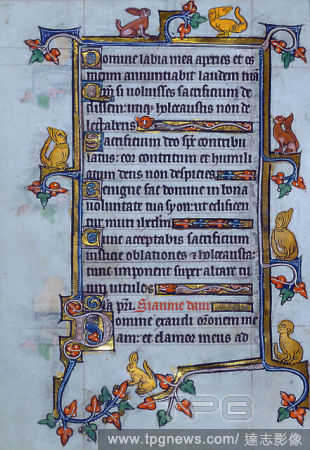 Domine labia mea aperies et os
meum annuntiabit laudem tuā
Qm̄ si voluisses sacrificium de
dissem utiq; holocaustis non de
lectaberis
Sacrificium deo sp̄c contribu
latus: cor contritum et humili
atum deus non despicies
Benigne fac domine in bona
voluntate tua syon: ut edificen
tur muri ierlm̄
Tunc acceptabis sacrificium
iusticie oblationes & holocausta:
tunc imponent super altare tu
um vitulos
Domine exaudi orōnem me
am: et clamor meus ad
TPG
www.tpgnews.com/ 達志影像